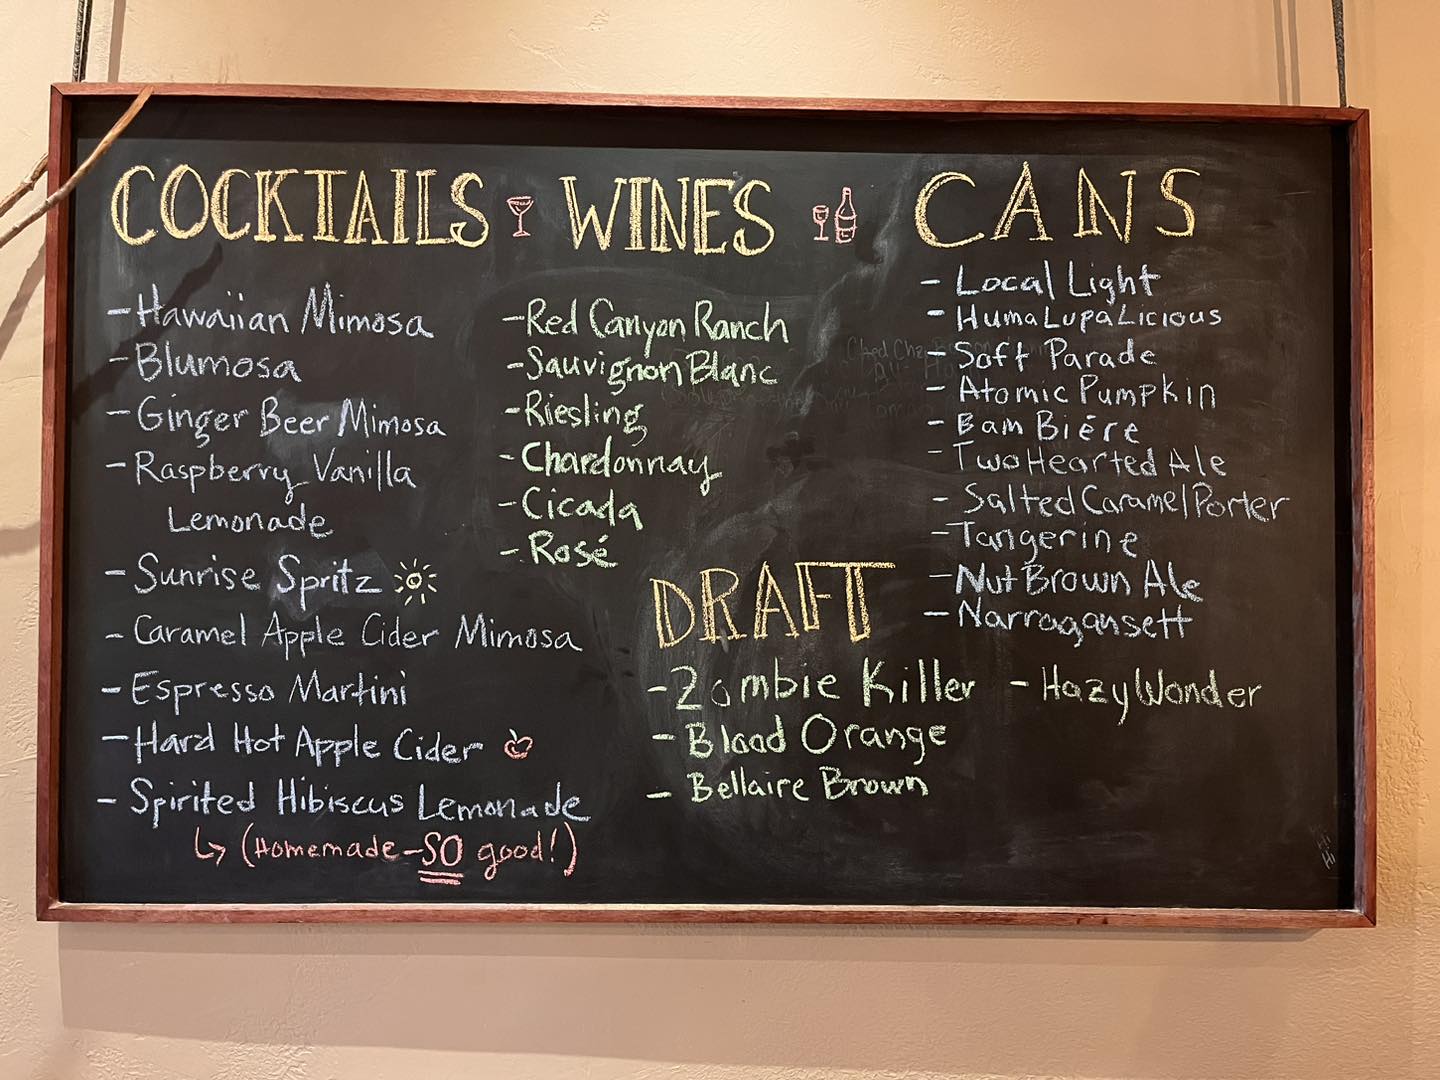 COCKTAILS
- Hawaiian Mimosa
- Blumosa
- Ginger Beer Mimosa
- Raspberry Vanilla
Lemonade
- Sunrise Spritz
- Caramel Apple Cider Mimosa
- Espresso Martini
- Hard Hot Apple Cider
- Spirited Hibiscus Lemonade
↳ (Homemade - SO good!)
WINES
- Red Canyon Ranch
- Sauvignon Blanc
- Riesling
- Chardonnay
- Cicada
- Rosé
DRAFT
- Zombie Killer
- Blood Orange
- Bellaire Brown
- Hazy Wonder
CANS
- Local Light
- HumaLupaLicious
- Soft Parade
- Atomic Pumpkin
- Bam Biére
- Two Hearted Ale
- Salted Caramel Porter
- Tangerine
- Nut Brown Ale
- Narragansett
Hi